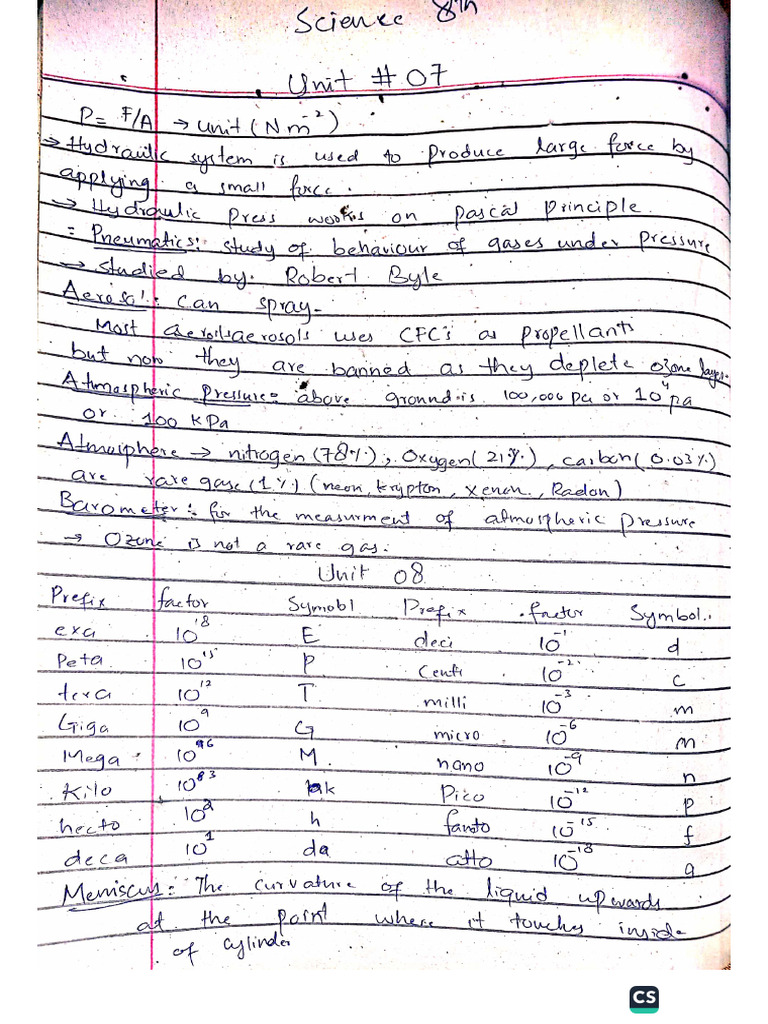 Science 8th
Unit # 07
P= F/A → unit (Nm⁻²)
→ Hydraulic system is used to produce large force by
applying a small force.
→ Hydraulic press works on pascal principle
= Pneumatics: study of behaviour of gases under pressure
→ studied by. Robert Byle
Aerosol: can spray.
Most aerosols uses CFC's as propellants
but now they are banned as they deplete ozone layer.
Atmospheric pressure: above ground is 100,000 pa or 10⁴ pa
or 100 KPa
Atmosphere → nitrogen (78%), oxygen (21%), carbon (0.03%)
are rare gase (1%) (neon, krypton, xenon, Radon)
Barometer: for the measurment of atmospheric pressure
→ Ozone is not a rare gas.
Unit 08
Prefix factor Symobl Prefix factor Symbol.
exa 10¹⁸ E deci 10⁻¹ d
Peta 10¹⁵ P Centi 10⁻² c
tera 10¹² T milli 10⁻³ m
Giga 10⁹ G micro 10⁻⁶ m
Mega 10⁶ M nano 10⁻⁹ n
Kilo 10³ k Pico 10⁻¹² p
hecto 10² h famto 10⁻¹⁵ f
deca 10¹ da atto 10⁻¹⁸ a
Memiscus: The curvature of the liquid upwards
at the point where it touches inside
of cylinder
CS